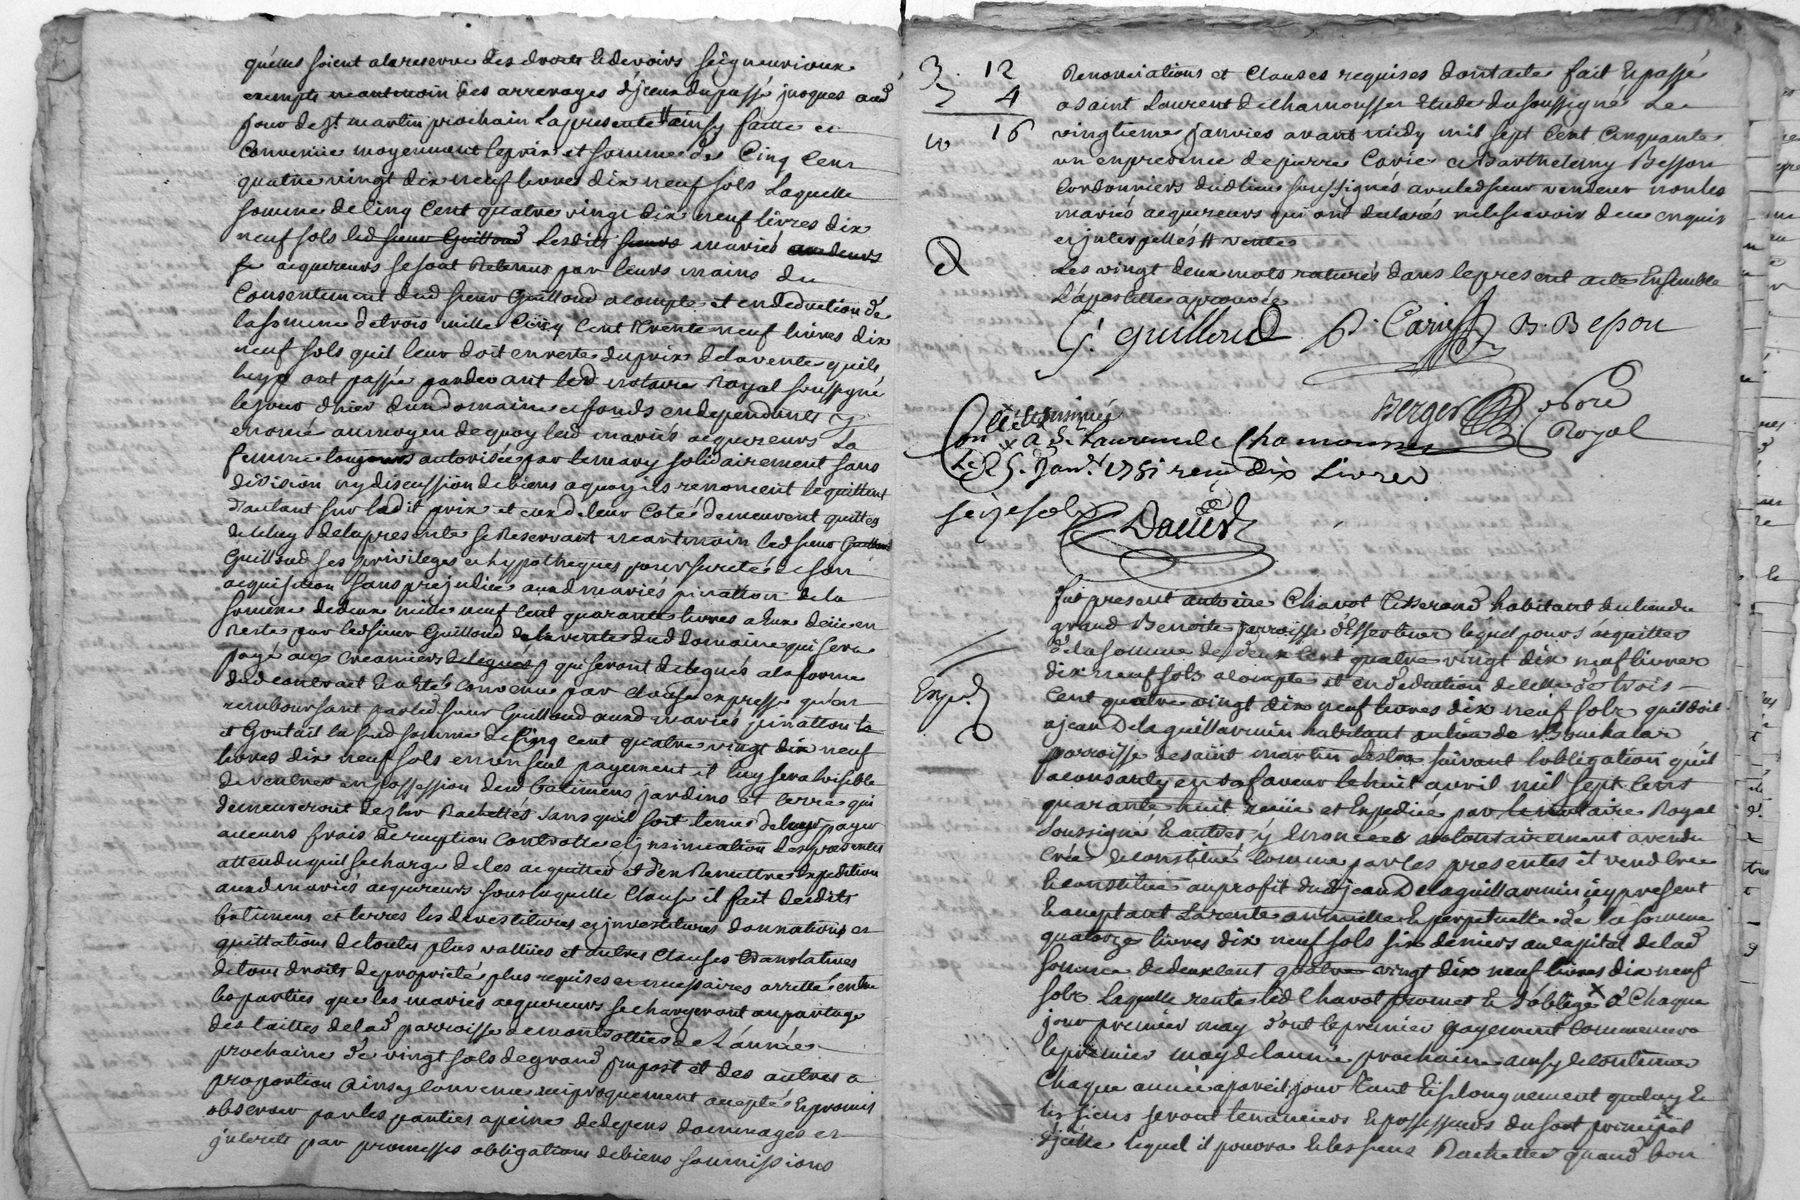 qu'elles soient a la reserve des droits et devoirs seigneuriaux
exempte maintenue des arrerages d'jceux du passé jusques aud
jour de st martin prochain La presente vente ainsy faitte et
Convenüe moyennant le prix et somme de Cinq Cent
quatre vingt dix neuf livres dix neuf sols Laquelle
somme de Cinq Cent quatre vingt dix neuf livres dix
neuf sols led sieur Guilloud Lesdits mariés
acquereurs se sont Retenus par leurs mains du
Consentement dud sieur Guilloud acompte et en deduction de
la somme de trois mille Cinq Cent trente neuf livres dix
neuf sols quil leur doit en reste du prix de la vente qu'ils
luy ont passée pardevant led notaire Royal soussigné
le jour d'hier d'un domaine et fonds en dependants y
enoncé au moyen de quoy led mariés acquereurs La
femme toujours autorisée par le mary solidairement sans
division ny discussion de biens a quoy ils renoncent le quittent
d'autant sur ledit prix et eux de leur Coté demeurent quittes
de celuy de la presente se Reservant maintenüe led sieur
Guilloud ses privileges et hypotheques pour sureté de son
acquisition sans prejudice auxd mariés pinatton de la
somme de deux mille neuf cent quarante livres a Eux düe en
Reste par led sieur Guilloud de la vente dud domaine qui sera
payé aux Creanciers delegués qui seront delegués a la forme
dud contrait Eté Convenu par Clause expresse qu'en
remboursant par led sieur Guilloud auxd mariés pinatton
et Goutail lad somme de Cinq cent quatre vingt dix neuf
livres dix neuf sols en un seul payement il luy sera loisible
de rentrer en possession desd bâtimens jardins et terre qui
demeureront des lors Rachettés sans qu'il soit tenu de payer
aucuns frais de reception Controlle et jnsinuation des presentes
attendu quil se charge de les acquitter et d'en Remettre Expedition
auxd mariés acquereurs sous laquelle Clause il fait desdits
bâtimens et terres les devestitures et jnvestitures donnations et
quittations de toutes plus vallües et autres Clauses translatives
de tous droits de proprieté plus requises et necessaires arretté entre
les parties que les mariés acquereurs se chargeront au partage
des tailles de lad parroisse de montrottier de L'année
prochaine de vingt sols de grand jmpost et des autres a
proportion ainsy convenu reciproquement accepté Et promis
observer par les parties a peine de depens dommages et
jnterets par promesses obligations de biens soumissions
3. 12
7 4
10 16
Renonciations et Clauses requises dont acte fait Et passé
a saint Laurent de Chamousset Etude du soussigné Le
vingtieme janvier avant midy mil sept Cent Cinquante
un en presence de pierre Carie et Barthelemy Besson
Cordonniers dud lieu soussignés avec led sieur vendeur non les
mariés acquereurs qui ont declarés ne le sçavoir de ce enquis
et jnterpellés H vente
Les vingt deux mots raturés dans le present acte Ensemble
L'apostille aprouvée
G. guilloud P. Carie B. Beson
Berger Nore Royal
Collé & jnsinué
Con a St Laurent de Chamousset
Le 25. Janv. 1751 reçu dix Livres
seize sols
Dauer
Fut present antoine Chavot tisserand habitant du lieu du
grand Benoite parroisse d'Essertines lequel pour s'acquitter
de la somme de deux cent quatre vingt dix neuf livres
dix neuf sols acompte et en deduction de celle de trois
cent quatre vingt dix neuf livres dix neuf sols quil doit
a jean Delaguillarmin habitant au lieu de
parroisse de saint martin Lestra suivant l'obligation quil
a consanty en sa faveur le huit avril mil sept cent
quarante huit reçüe et Expediée par le notaire Royal
soussigné Et autres y Enoncées volontairement a vendu
Créé et constitué Comme par les presentes il vend Crée
Et constitue au profit dud jean Delaguillarmin icy present
Et acceptant La rente annuelle Et perpetuelle de la somme
quatorze livres dix neuf sols six deniers au capital de lad
somme de deux cent quatre vingt dix neuf livres dix neuf
sols Laquelle rente led Chavot promet Et s'oblige a Chaque
jour premier may d'ont le premier payement commencera
le premier may de l'année prochaine ainsy de continuer
Chaque année a pareil jour tant Et si longuement que luy Et
les siens seront tenanciers Et possesseurs du sort principal
d'jcelle lequel il pourra Et les siens Rachetter quand bon
Exp.